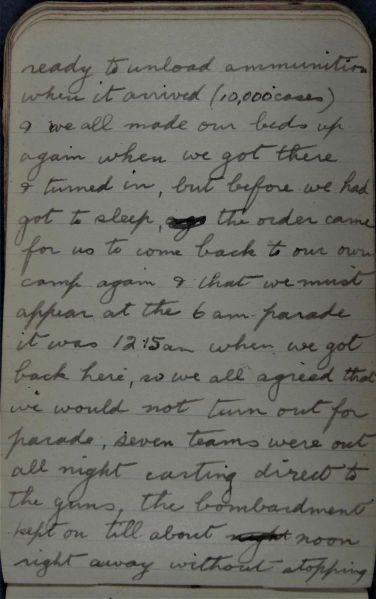 ready to unload ammunition
when it arrived (10,000 cases)
& we all made our beds up
again when we got there
& turned in, but before we had
got to sleep, the order came
for us to come back to our own
camp again & that we must
appear at the 6 am parade
it was 12.15 am when we got
back here, so we all agreed that
we would not turn out for
parade, seven teams were out
all night carting direct to
the guns, the bombardment
kept on till about night noon
right away without stopping